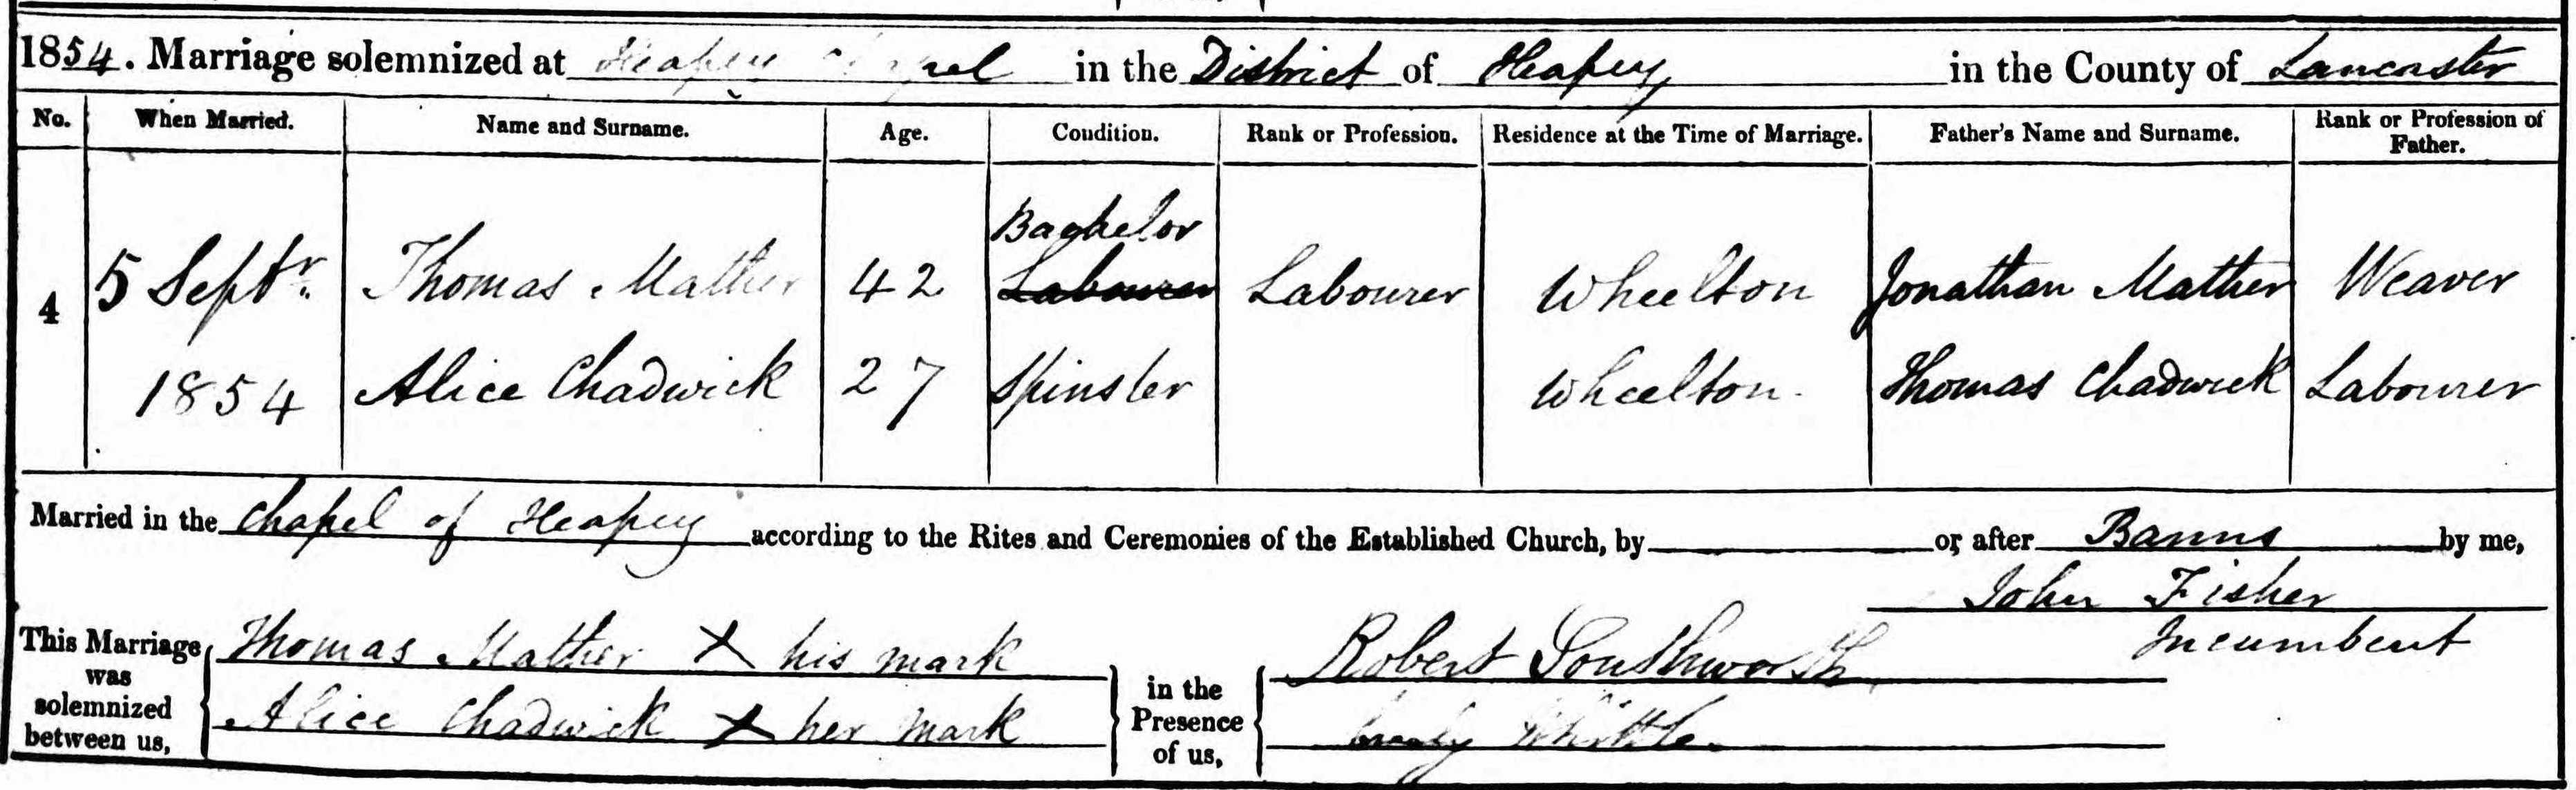 1854. Marriage solemnized at Heapey Chapel in the District of Heapey in the County of Lancaster
No. When Married. Name and Surname. Age. Condition. Rank or Profession. Residence at the Time of Marriage. Father's Name and Surname. Rank or Profession of Father.
Bachelor
4 5 Septr. Thomas Mather 42 Labourer Labourer Wheelton Jonathan Mather Weaver
1854 Alice Chadwick 27 Spinster Wheelton. Thomas Chadwick Labourer
Married in the Chapel of Heapey according to the Rites and Ceremonies of the Established Church, by or after Banns by me,
John Fisher
Incumbent
This Marriage was solemnized between us, Thomas Mather X his mark
Alice Chadwick X her mark
in the Presence of us, Robert Southworth
Whittle.